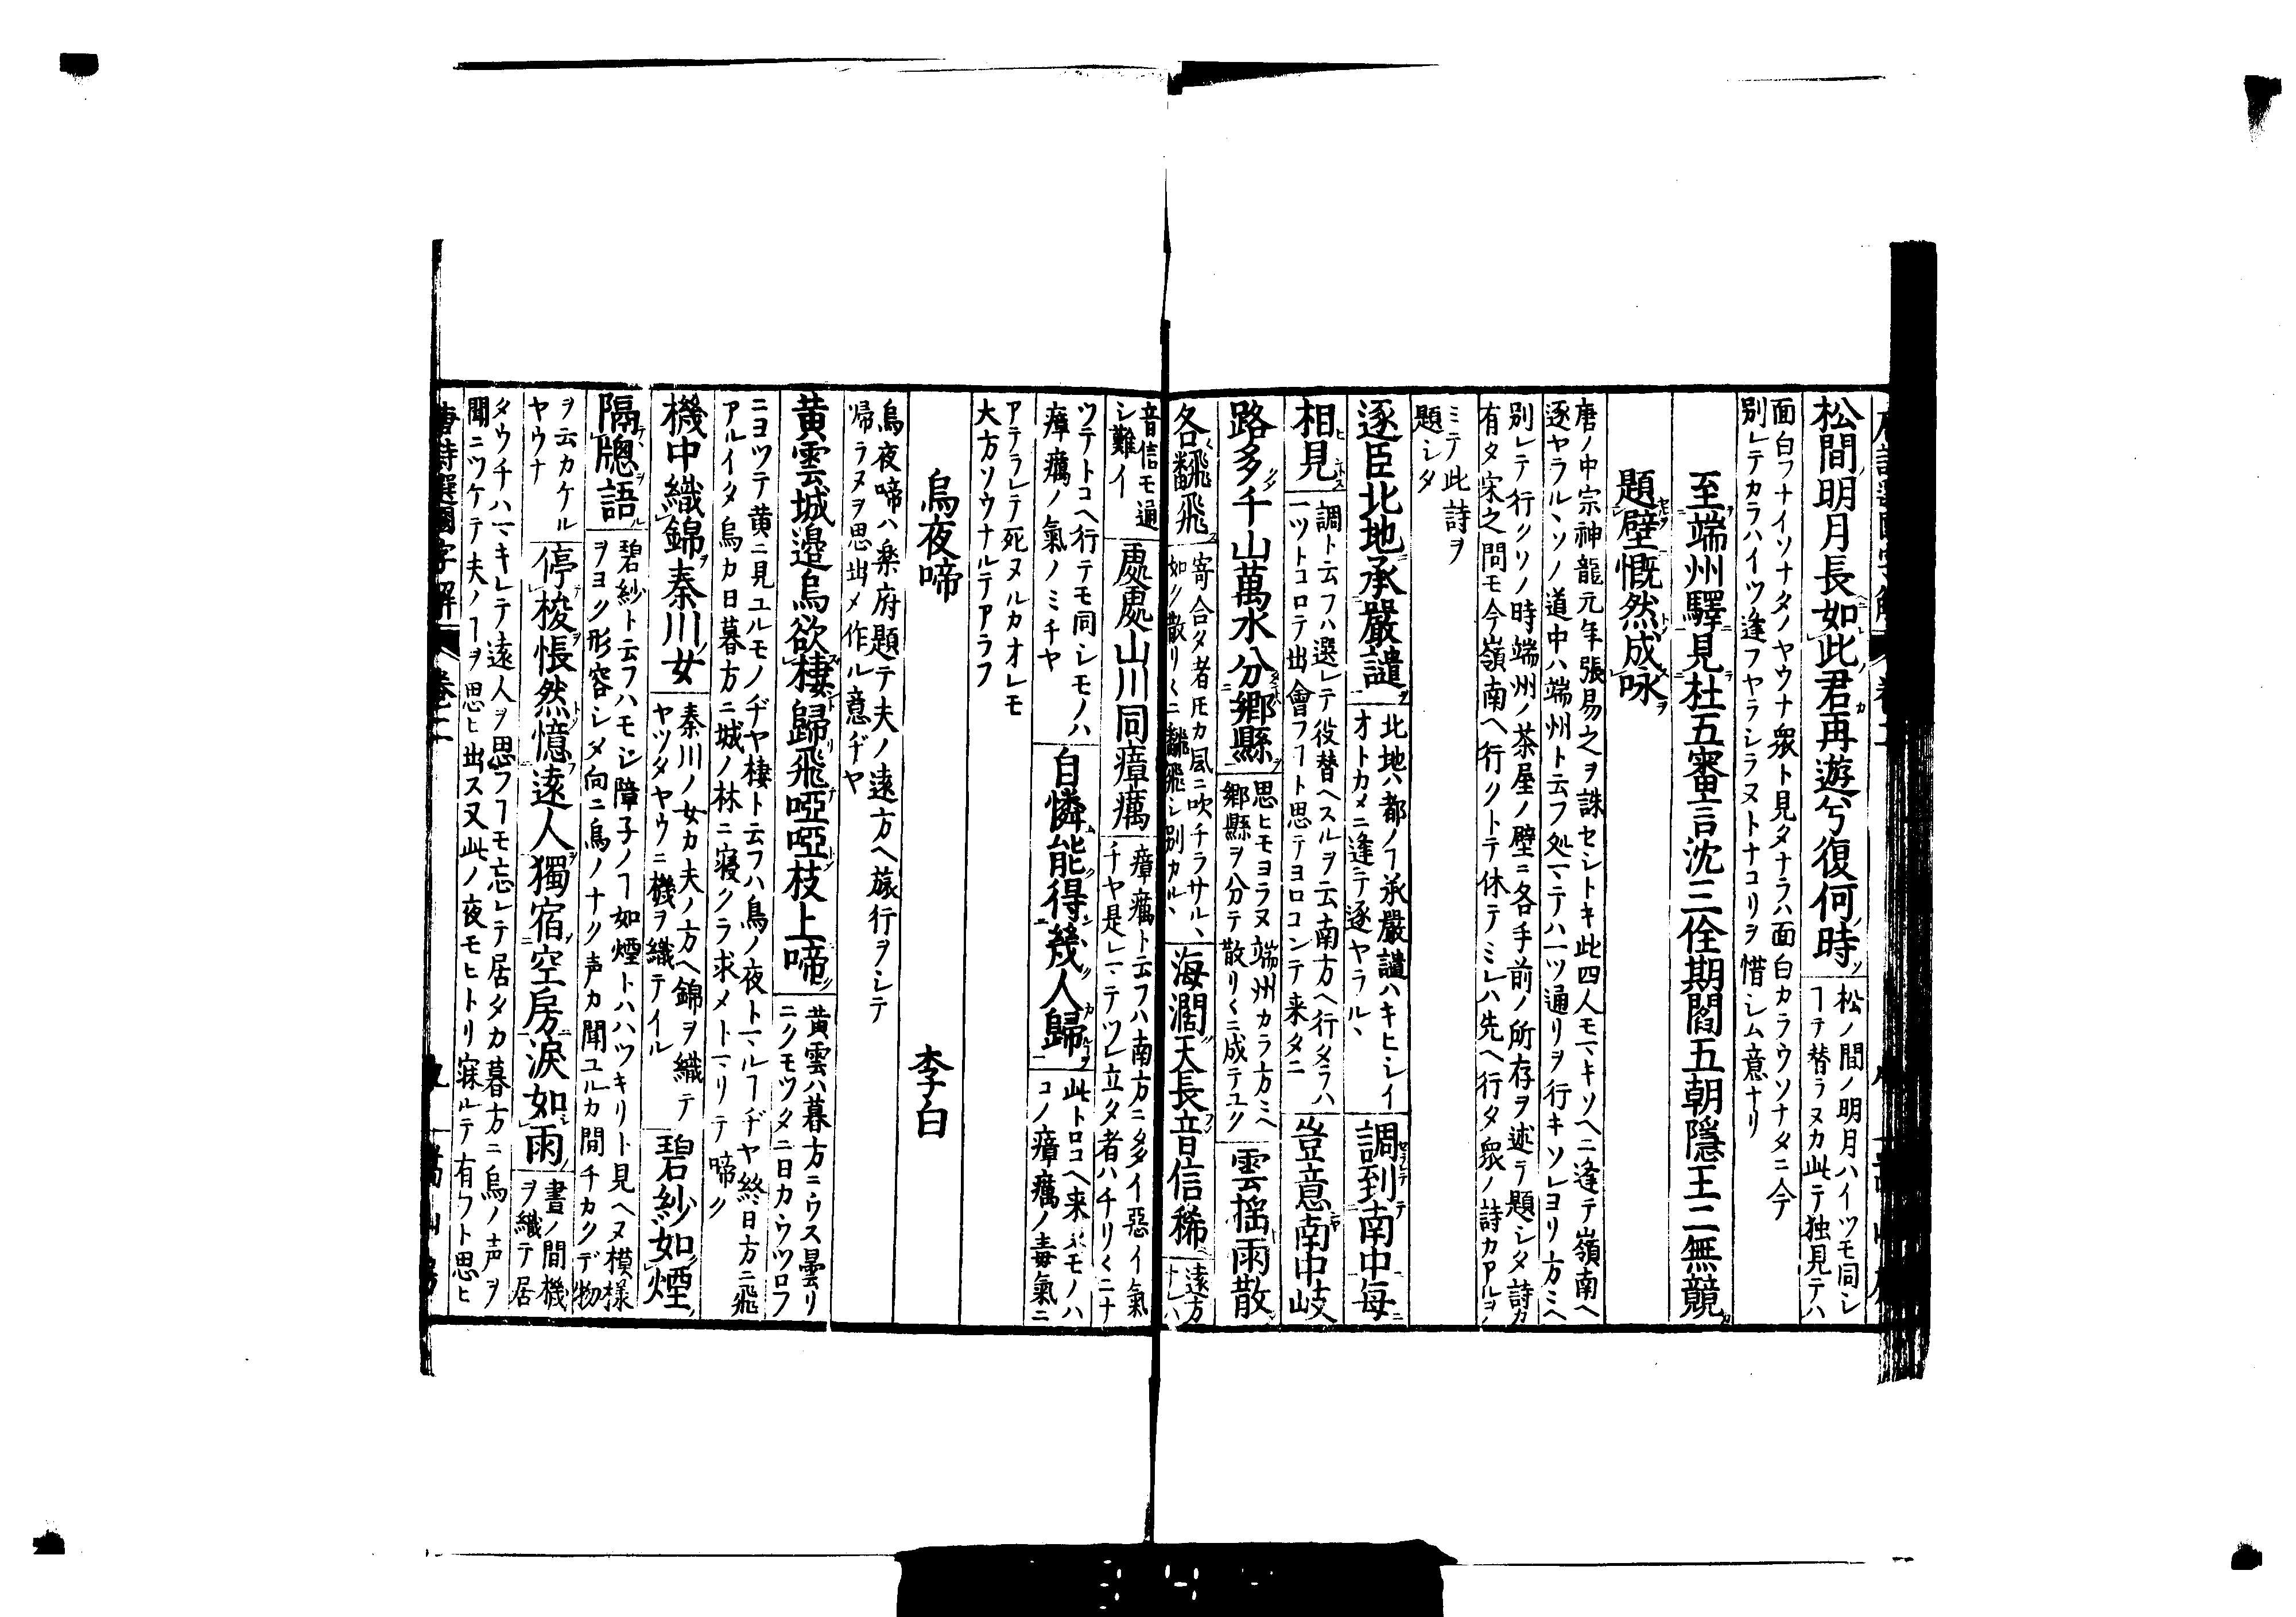 松間明月長如此君再遊兮復何時
松ノ間ノ明月ハイツモ同シ
ヿテ替ラヌカ此テ独見テハ
面白フナイソナタノヤウナ衆ト見タナラハ面白カラウソナタニ今
別レテカラハイツ逢フヤラシラヌトナコリヲ惜シム意ナリ
至端州驛見杜五審言沈三佺期閻五朝隱王二無競
題壁慨然成咏
唐ノ中宗神龍元年張易之ヲ誅セシトキ此四人モマキソヘニ逢テ嶺南ヘ
逐ヤラルヽソノ道中ハ端州ト云フ処マテハ一ツ通リヲ行キソレヨリ方ミヘ
別レテ行クソノ時端州ノ茶屋ノ壁ニ各手前ノ所存ヲ述テ題シタ詩カ
有タ宋之問モ今嶺南ヘ行クトテ休テミレハ先ヘ行タ衆ノ詩カアルヲ
ミテ此詩ヲ
題シタ
逐臣北地承嚴譴
北地ハ都ノヿ承嚴譴ハキヒシイ
オトカメニ逢テ逐ヤラルヽ
調到南中每
相見
調ト云フハ選レテ役替ヘスルヲ云南方ヘ行タラハ
一ツトコロテ出會フヿト思テヨロコンテ来タニ
豈意南中岐
路多千山萬水分鄉縣
思ヒモヨラヌ端州カラ方ミヘ
郷縣ヲ分テ散リ〱ニ成テユク
雲搖雨散
各飜飛
寄合タ者𪜈カ風ニ吹チラサルヽ
如ク散リ〱ニ飜飛シ別カルヽ
海濶天長音信稀
遠方
ナレハ
音信モ通
シ難イ
處處山川同瘴癘
瘴癘ト云フハ南方ニ多イ惡イ氣
チヤ是レマテツレ立タ者ハチリ〱ニナ
ツテトコヘ行テモ同シモノハ
瘴癘ノ氣ノミチヤ
自憐能得幾人歸
此トロコヘ来タモノハ
コノ瘴癘ノ毒氣ニ
アテラレテ死ヌルカオレモ
大方ソウナルテアラフ
烏夜啼
李白
烏夜啼ハ楽府題テ夫ノ遠方ヘ旅行ヲシテ
帰ラヌヲ思出メ作ル意ヂヤ
黄雲城邉烏欲棲歸飛啞啞枝上啼
黄雲ハ暮方ニウス曇リ
ニクモツタニ日カウツロフ
ニヨツテ黄ニ見ユルモノヂヤ棲ト云フハ鳥ノ夜トマルヿヂヤ終日方ニ飛
アルイタ烏カ日暮方ニ城ノ林ニ寝クラ求メトマリテ啼ク
機中織錦秦川女
秦川ノ女カ夫ノ方ヘ錦ヲ織テ
ヤツタヤウニ機ヲ織テイル
碧紗如煙
隔牕語
碧紗ト云フハモシ障子ノヿ如煙トハハツキリト見ヘヌ模様
ヲヨク形容シメ向ニ烏ノナク声カ聞ユルカ間チカクデ物
ヲ云カケル
ヤウナ
停梭悵然憶遠人獨宿空房淚如雨
晝ノ間機
ヲ織テ居
タウチハマキレテ遠人ヲ思フヿモ忘レテ居タカ暮方ニ烏ノ声ヲ
聞ニツケテ夫ノヿヲ思ヒ出ス又此ノ夜モヒトリ寐ルテ有フト思ヒ
唐詩選國字解 卷二